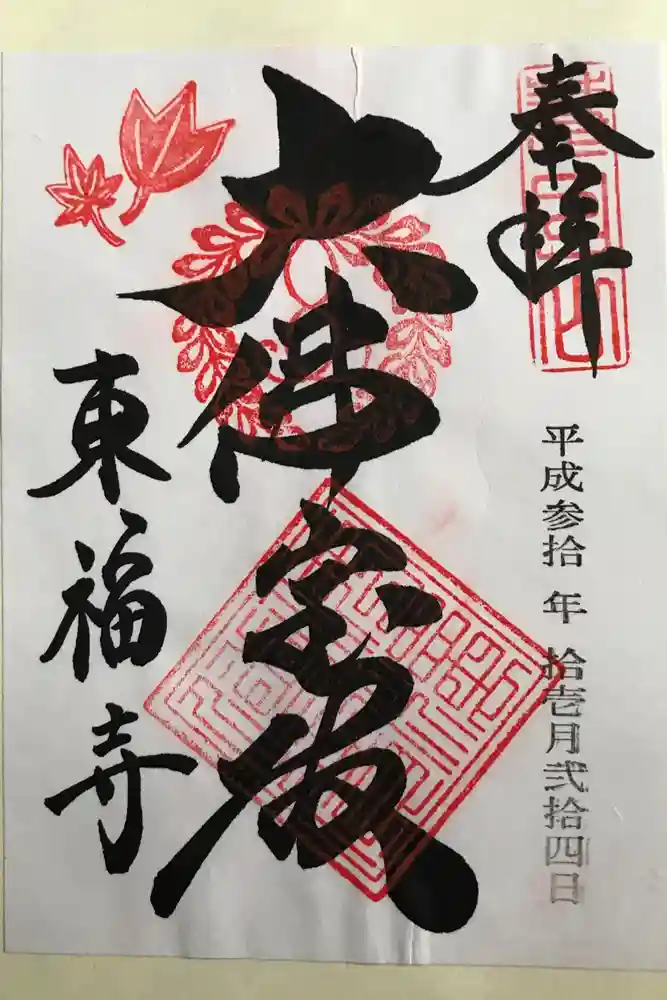 奉拝
平成参拾年 拾壱月弐拾四日
大佛宝殿
東福寺